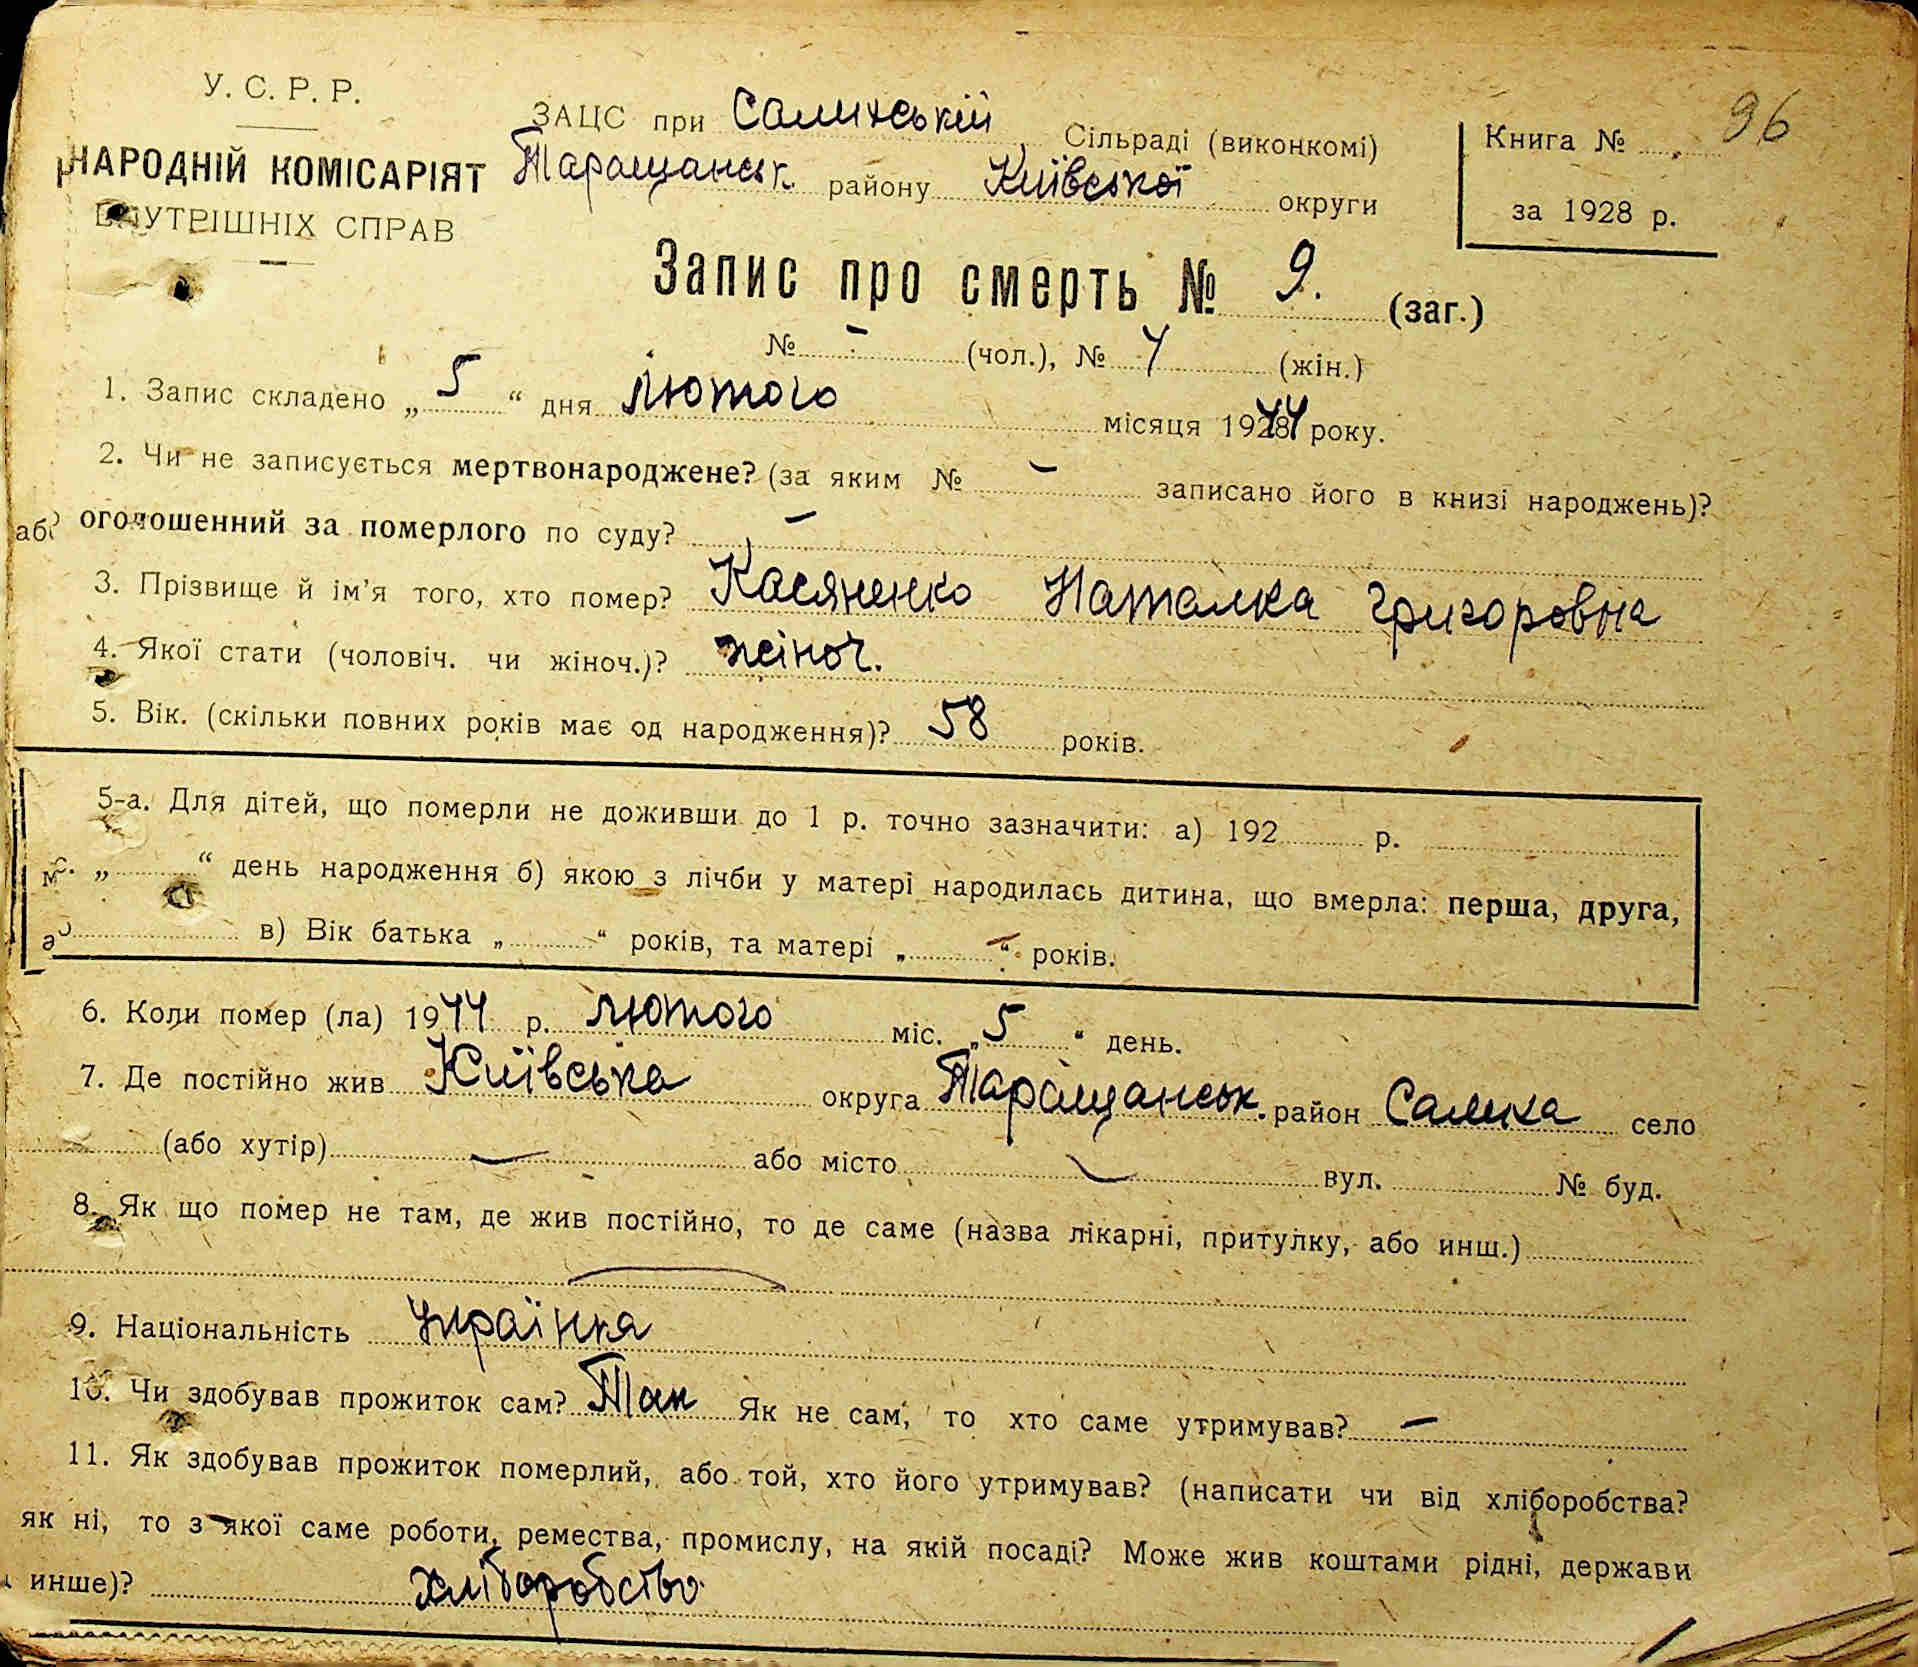 У. С. Р. Р.
НАРОДНІЙ КОМІСАРІЯТ
ВНУТРІШНІХ СПРАВ
ЗАЦС при Салиській Сільраді (виконкомі)
Таращанськ. району Київської округи
Книга № 96
за 1928 р.
Запис про смерть № 9. (заг.)
№ - (чол.), № 4 (жін.)
1. Запис складено „ 5 “ дня лютого місяця 192844 року.
2. Чи не записується мертвонароджене? (за яким № - записано його в книзі народжень)?
або оголошенний за померлого по суду? -
3. Прізвище й ім’я того, хто помер? Касяненко Наталка Григоровна
4. Якої стати (чоловіч. чи жіноч.)? жіноч.
5. Вік. (скільки повних років має од народження)? 58 років.
5-а. Для дітей, що померли не доживши до 1 р. точно зазначити: а) 192 р.
м. „ “ день народження б) якою з лічби у матері народилась дитина, що вмерла: перша, друга,
в) Вік батька „ “ років, та матері „ “ років.
6. Коли помер (ла) 1944 р. лютого міс. „ 5 “ день.
7. Де постійно жив Київська округа Таращанськ. район Салиха село
(або хутір) - або місто - вул. № буд.
8. Як що помер не там, де жив постійно, то де саме (назва лікарні, притулку, або инш.)
9. Національність українка
10. Чи здобував прожиток сам? Так Як не сам, то хто саме утримував? -
11. Як здобував прожиток померлий, або той, хто його утримував? (написати чи від хліборобства?
як ні, то з якої саме роботи, ремества, промислу, на якій посаді? Може жив коштами рідні, держави
инше)? хліборобство